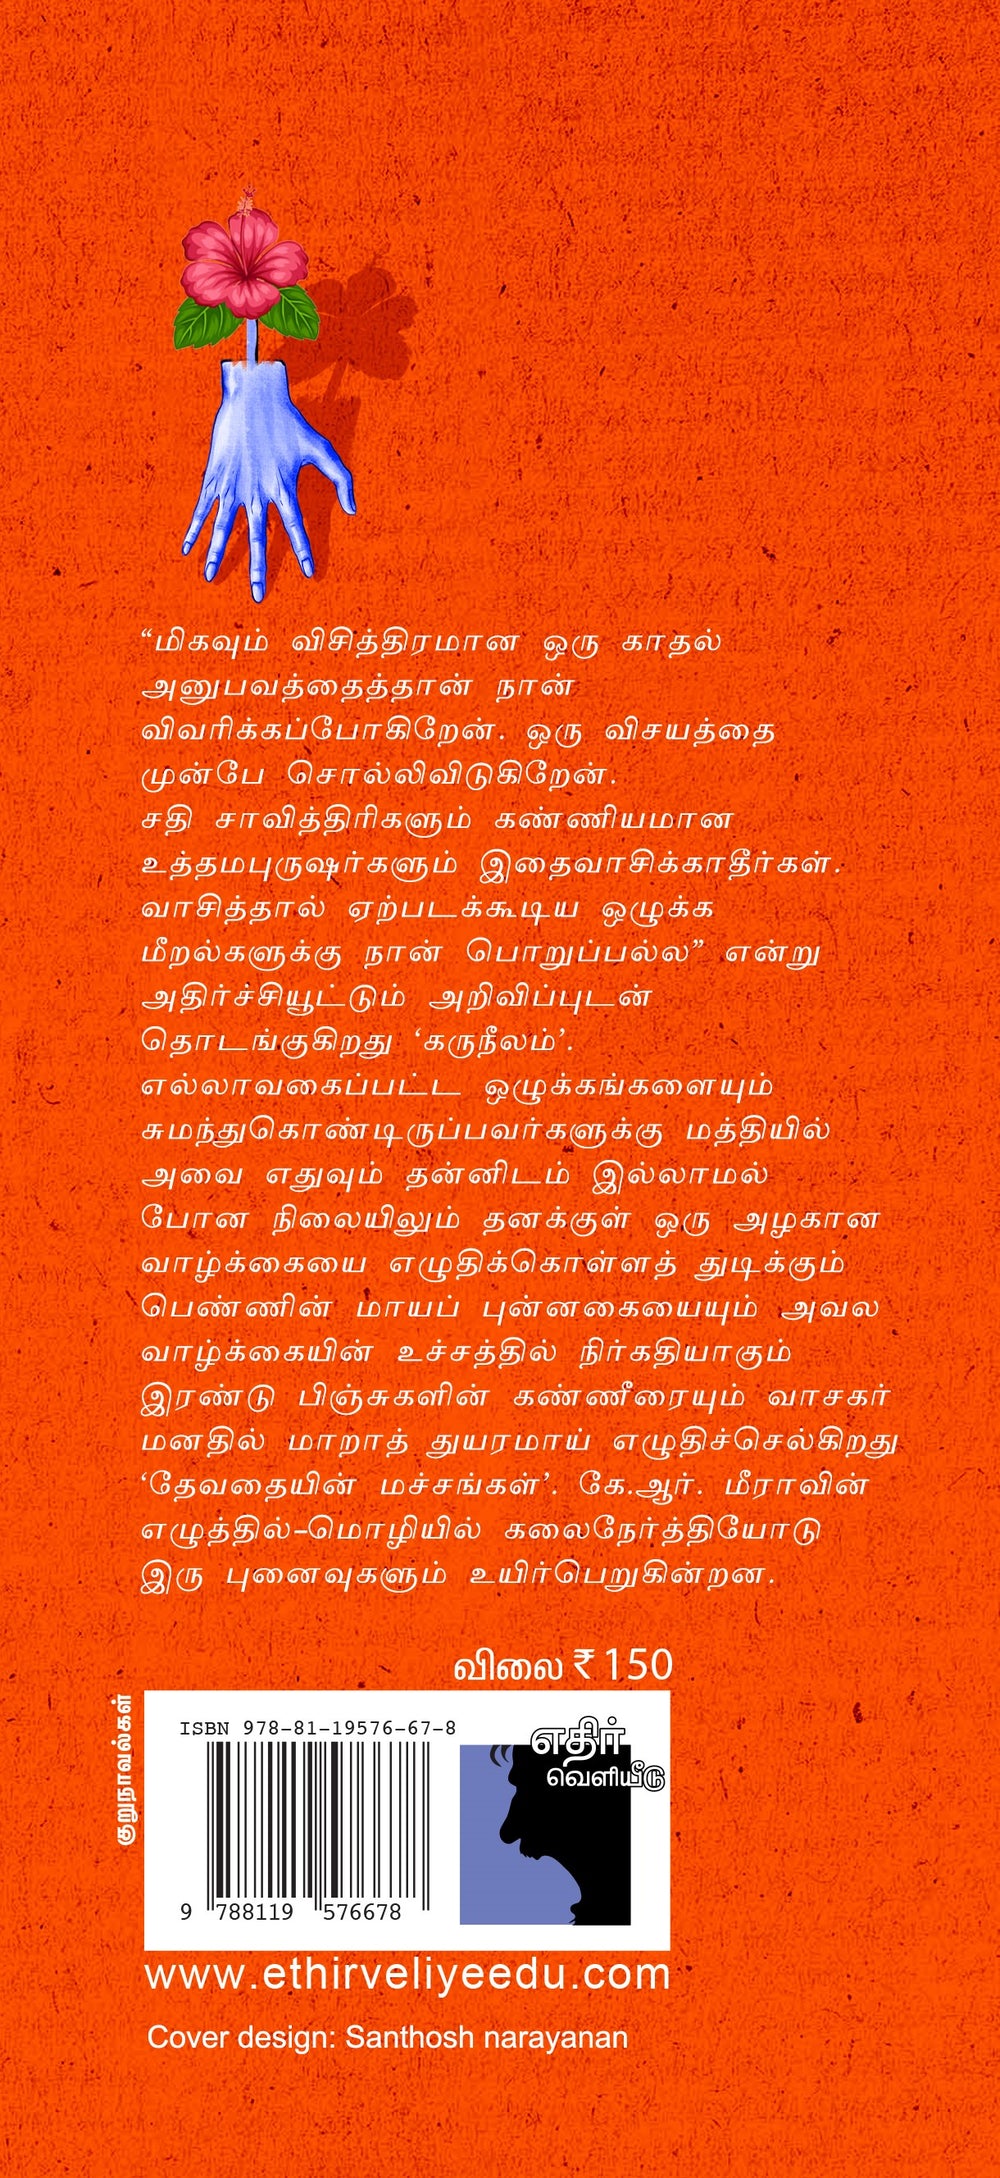 “மிகவும் விசித்திரமான ஒரு காதல்
அனுபவத்தைத்தான் நான்
விவரிக்கப்போகிறேன். ஒரு விசயத்தை
முன்பே சொல்லிவிடுகிறேன்.
சதி சாவித்திரிகளும் கண்ணியமான
உத்தமபுருஷர்களும் இதைவாசிக்காதீர்கள்.
வாசித்தால் ஏற்படக்கூடிய ஒழுக்க
மீறல்களுக்கு நான் பொறுப்பல்ல” என்று
அதிர்ச்சியூட்டும் அறிவிப்புடன்
தொடங்குகிறது ‘கருநீலம்’.
எல்லாவகைப்பட்ட ஒழுக்கங்களையும்
சுமந்துகொண்டிருப்பவர்களுக்கு மத்தியில்
அவை எதுவும் தன்னிடம் இல்லாமல்
போன நிலையிலும் தனக்குள் ஒரு அழகான
வாழ்க்கையை எழுதிக்கொள்ளத் துடிக்கும்
பெண்ணின் மாயப் புன்னகையையும் அவல
வாழ்க்கையின் உச்சத்தில் நிர்கதியாகும்
இரண்டு பிஞ்சுகளின் கண்ணீரையும் வாசகர்
மனதில் மாறாத் துயரமாய் எழுதிச்செல்கிறது
‘தேவதையின் மச்சங்கள்’. கே.ஆர். மீராவின்
எழுத்தில்-மொழியில் கலைநேர்த்தியோடு
இரு புனைவுகளும் உயிர்பெறுகின்றன.
விலை ₹ 150
குறுநாவல்கள்
ISBN 978-81-19576-67-8
9 788119 576678
எதிர்
வெளியீடு
www.ethirveliyeedu.com
Cover design: Santhosh narayanan